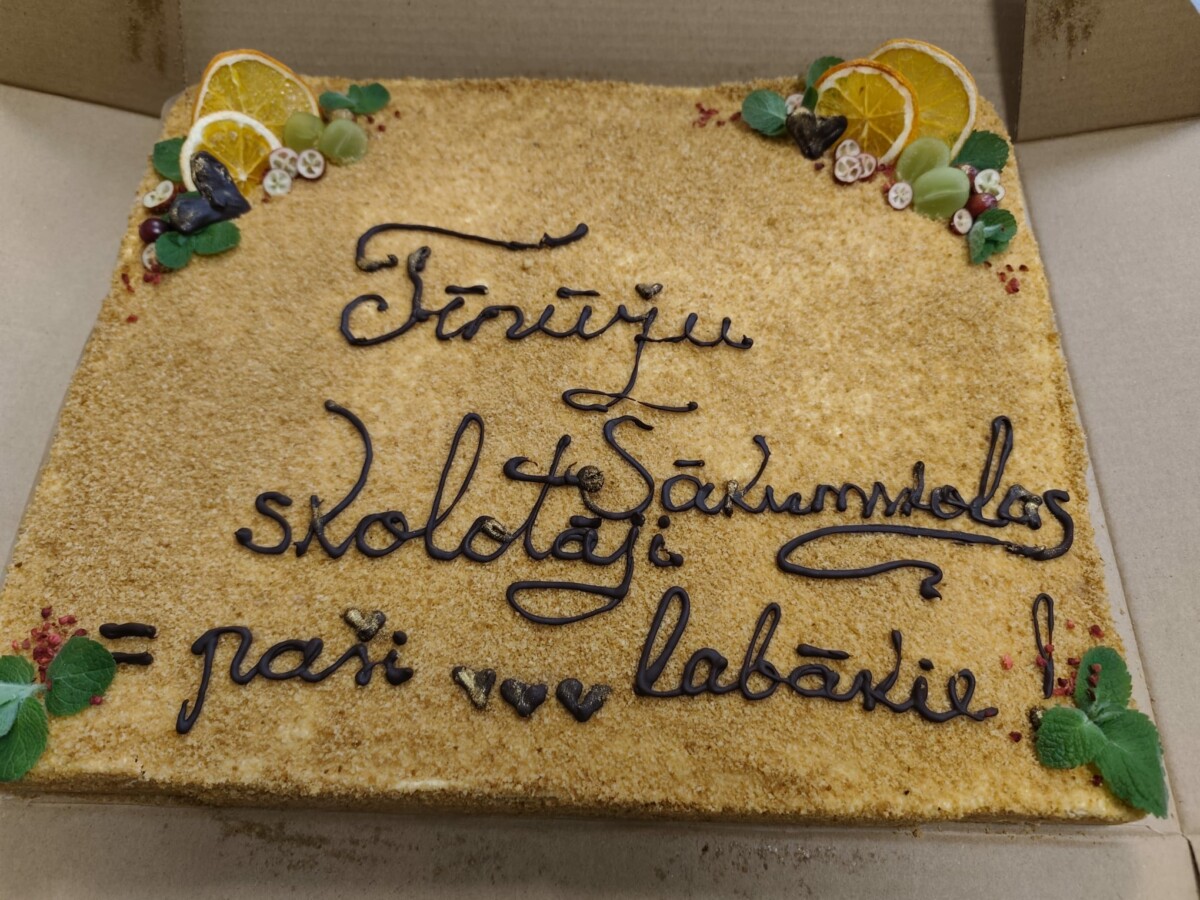 Tīnūžu
Sākumskolas
skolotāji
= paši labākie!